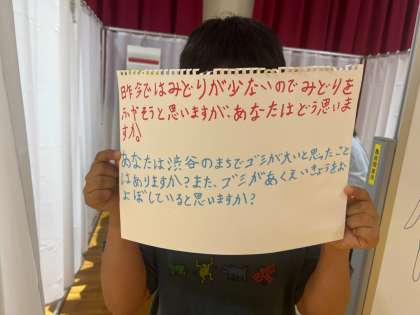 昨今ではみどりが少ないのでみどりを
ふやそうと思いますが、あなたはどう思いま
すか。
あなたは渋谷のまちでゴミが大いと思ったこと
はありますか?また、ゴミがあくえいきょうをお
よぼしていると思いますか?